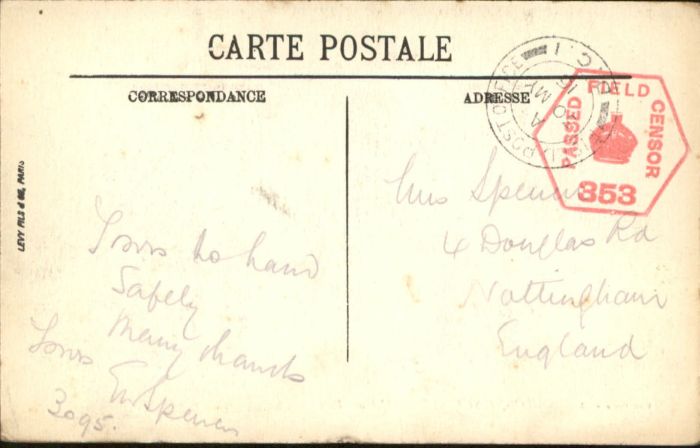 CARTE POSTALE
CORRESPONDANCE
ADRESSE
FIELD POST OFFICE
A
MY
16
PASSED FIELD CENSOR
353
LEVY FILS & CIE, PARIS
Yours to hand
Safely
Many thanks
Yours
3095.
4 Douglas Rd
Nottingham
England